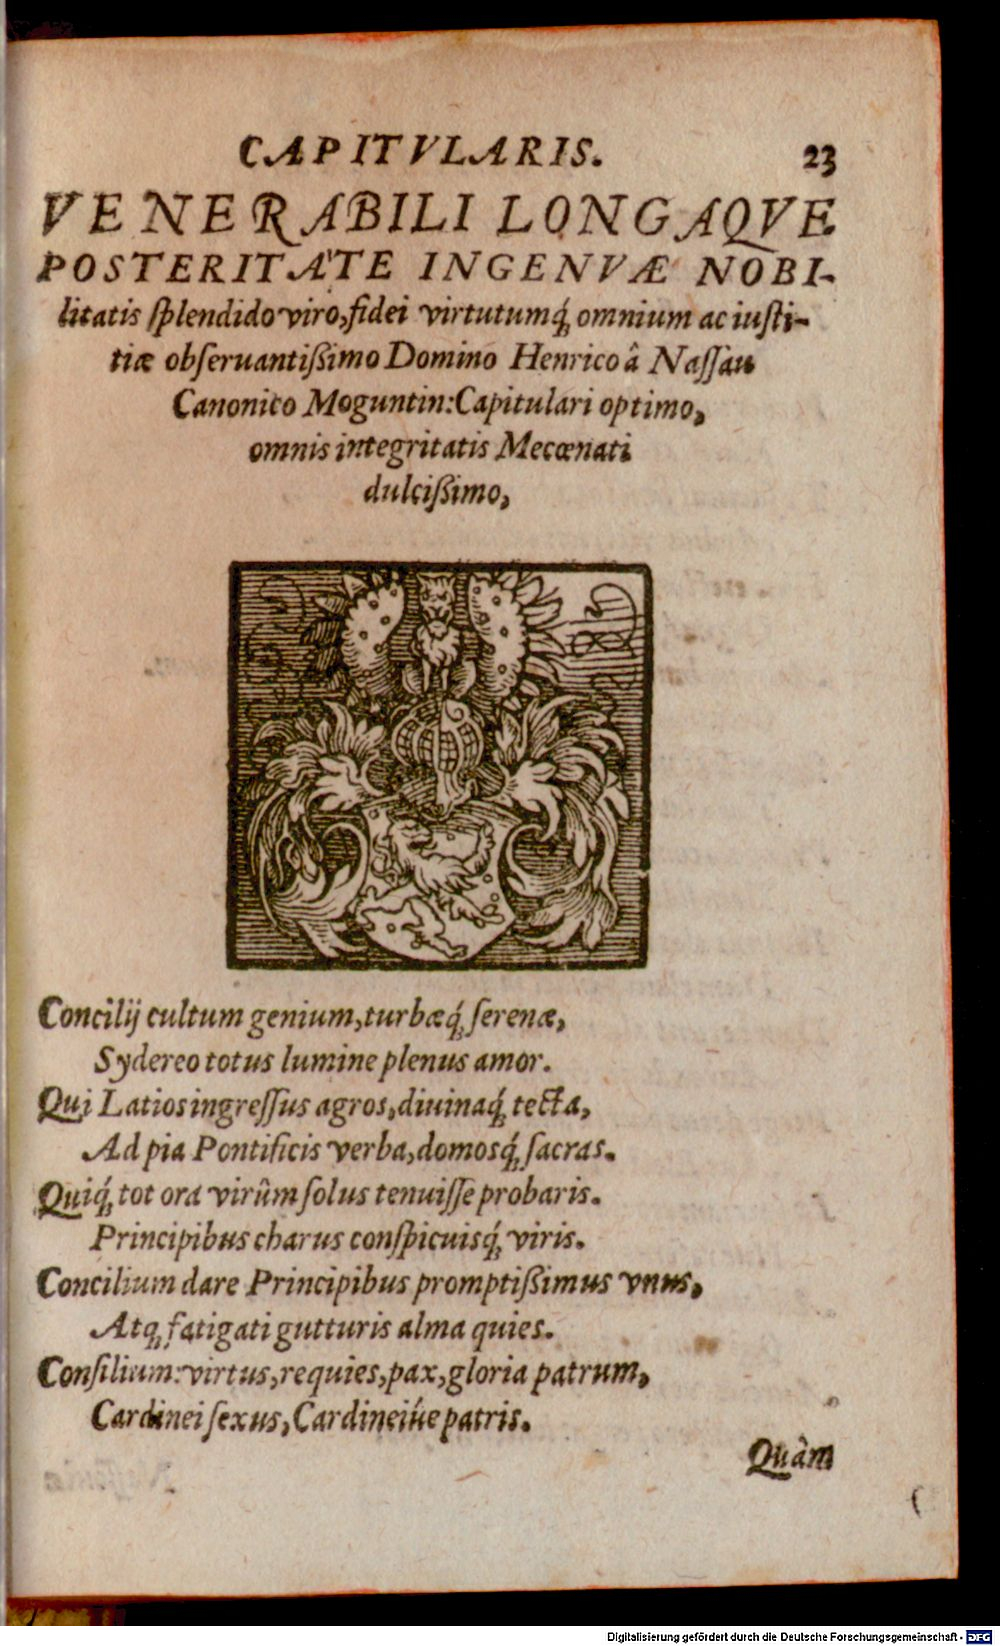 CAPITVLARIS. 23
VENERABILI LONGAQVE
POSTERITATE INGENVÆ NOBI-
litatis splendido viro, fidei virtutumq́; omnium ac iusti-
tiæ obseruantißimo Domino Henrico â Nassau
Canonico Moguntin: Capitulari optimo,
omnis integritatis Mecœnati
dulcißimo,
Concilij cultum genium, turbæq́; serenæ,
Sydereo totus lumine plenus amor.
Qui Latios ingressus agros, diuinaq́; tecta,
Ad pia Pontificis verba, domosq́; sacras.
Quiq́; tot ora virûm solus tenuisse probaris.
Principibus charus conspicuisq́; viris.
Concilium dare Principibus promptißimus vnus,
Atq; fatigati gutturis alma quies.
Consilium: virtus, requies, pax, gloria patrum,
Cardinei sexus, Cardineiúe patris.
Quàm
Digitalisierung gefördert durch die Deutsche Forschungsgemeinschaft - DFG